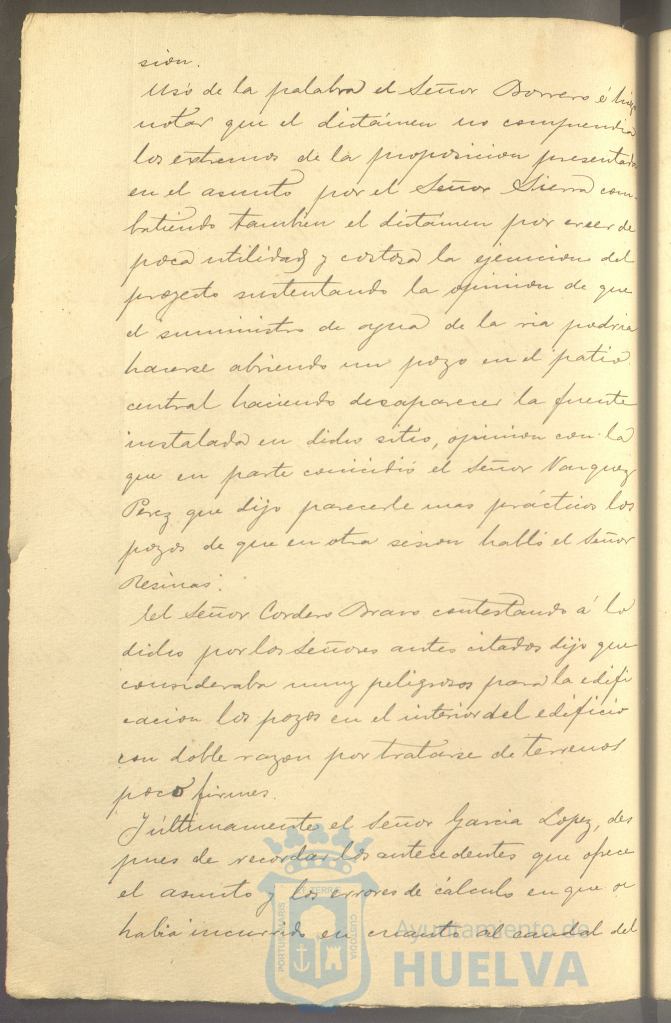 sion.
Usó de la palabra el Señor Borrero é hizo
notar que el dictámen no comprendia
los extremos de la proposicion presentada
en el asunto por el Señor Sierra com-
batiendo tambien el dictámen por creer de
poca utilidad y costosa la ejecucion del
proyecto sustentando la opinion de que
el suministro de agua de la ria podria
hacerse abriendo un pozo en el patio
central haciendo desaparecer la fuente
instalada en dicho sitio, opinion con la
que en parte coincidió el Señor Vazquez
Perez que dijo parecerle mas prácticos los
pozos de que en otra sesion habló el Señor
Resinas.
El Señor Cordero Bravo contestando á lo
dicho por los Señores antes citados dijo que
consideraba muy peligrosos para la edifi
cacion los pozos en el interior del edificio
con doble razon por tratarse de terrenos
poco firmes.
Y últimamente el Señor Garcia Lopez, des
pues de recordar los antecedentes que ofrece
el asunto y los errores de cálculo en que se
habia incurrido en cuanto al caudal del
PORTUS MARIS
ET TERRE
CUSTODIA
Ayuntamiento de
HUELVA